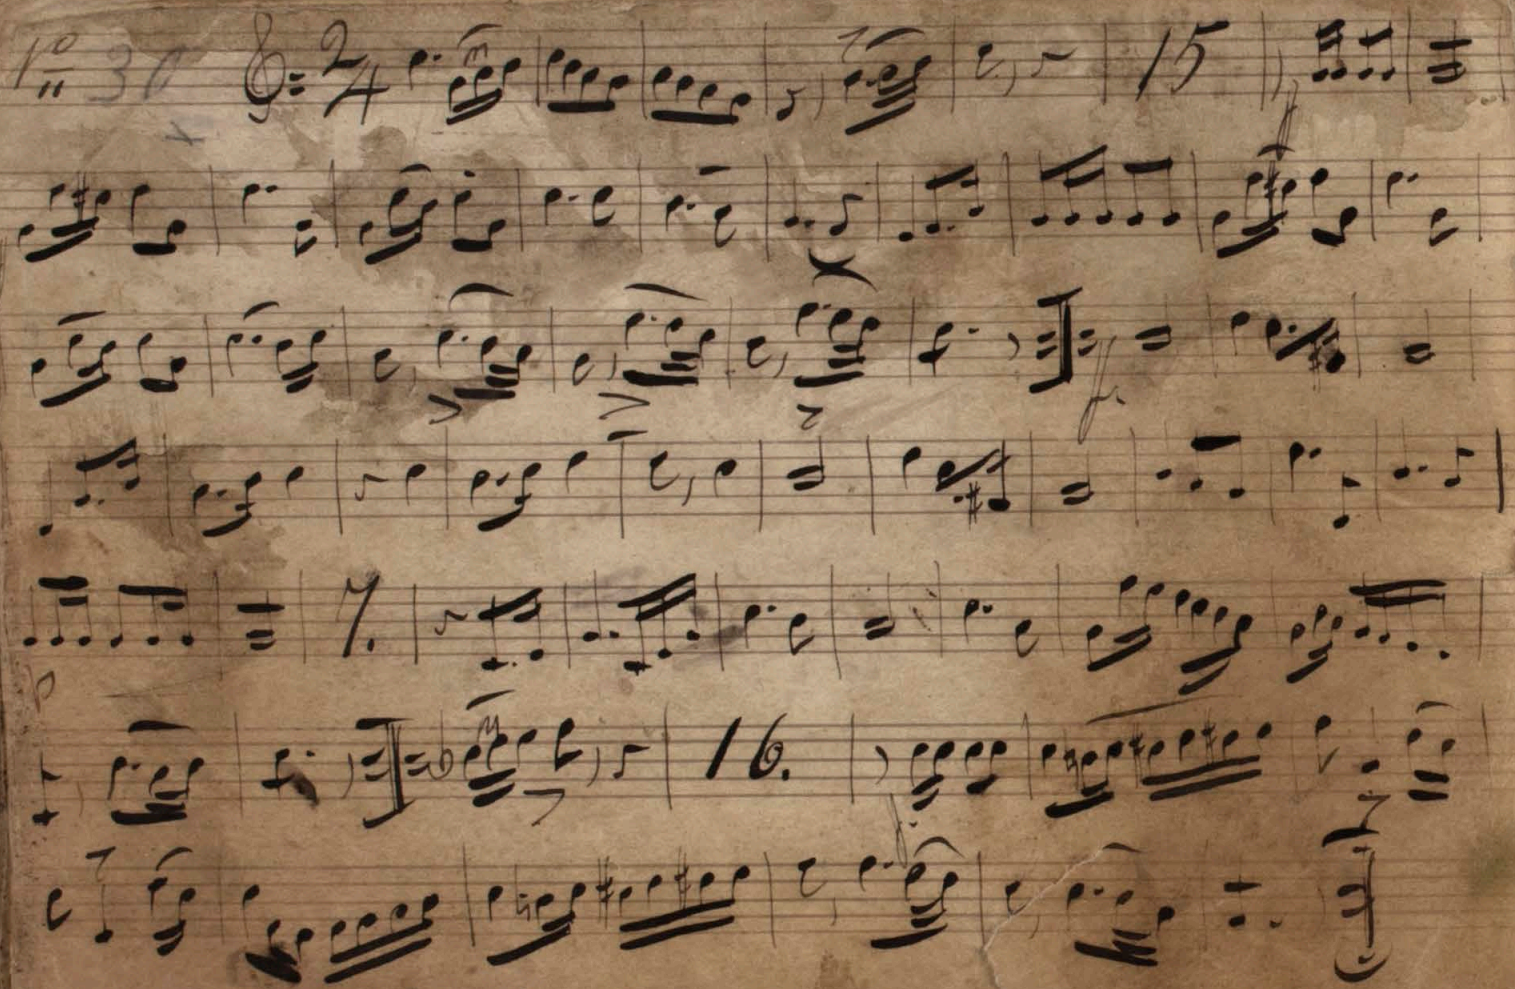 No 30 2/4 15
ff
ff.
7.
p
16.
f.